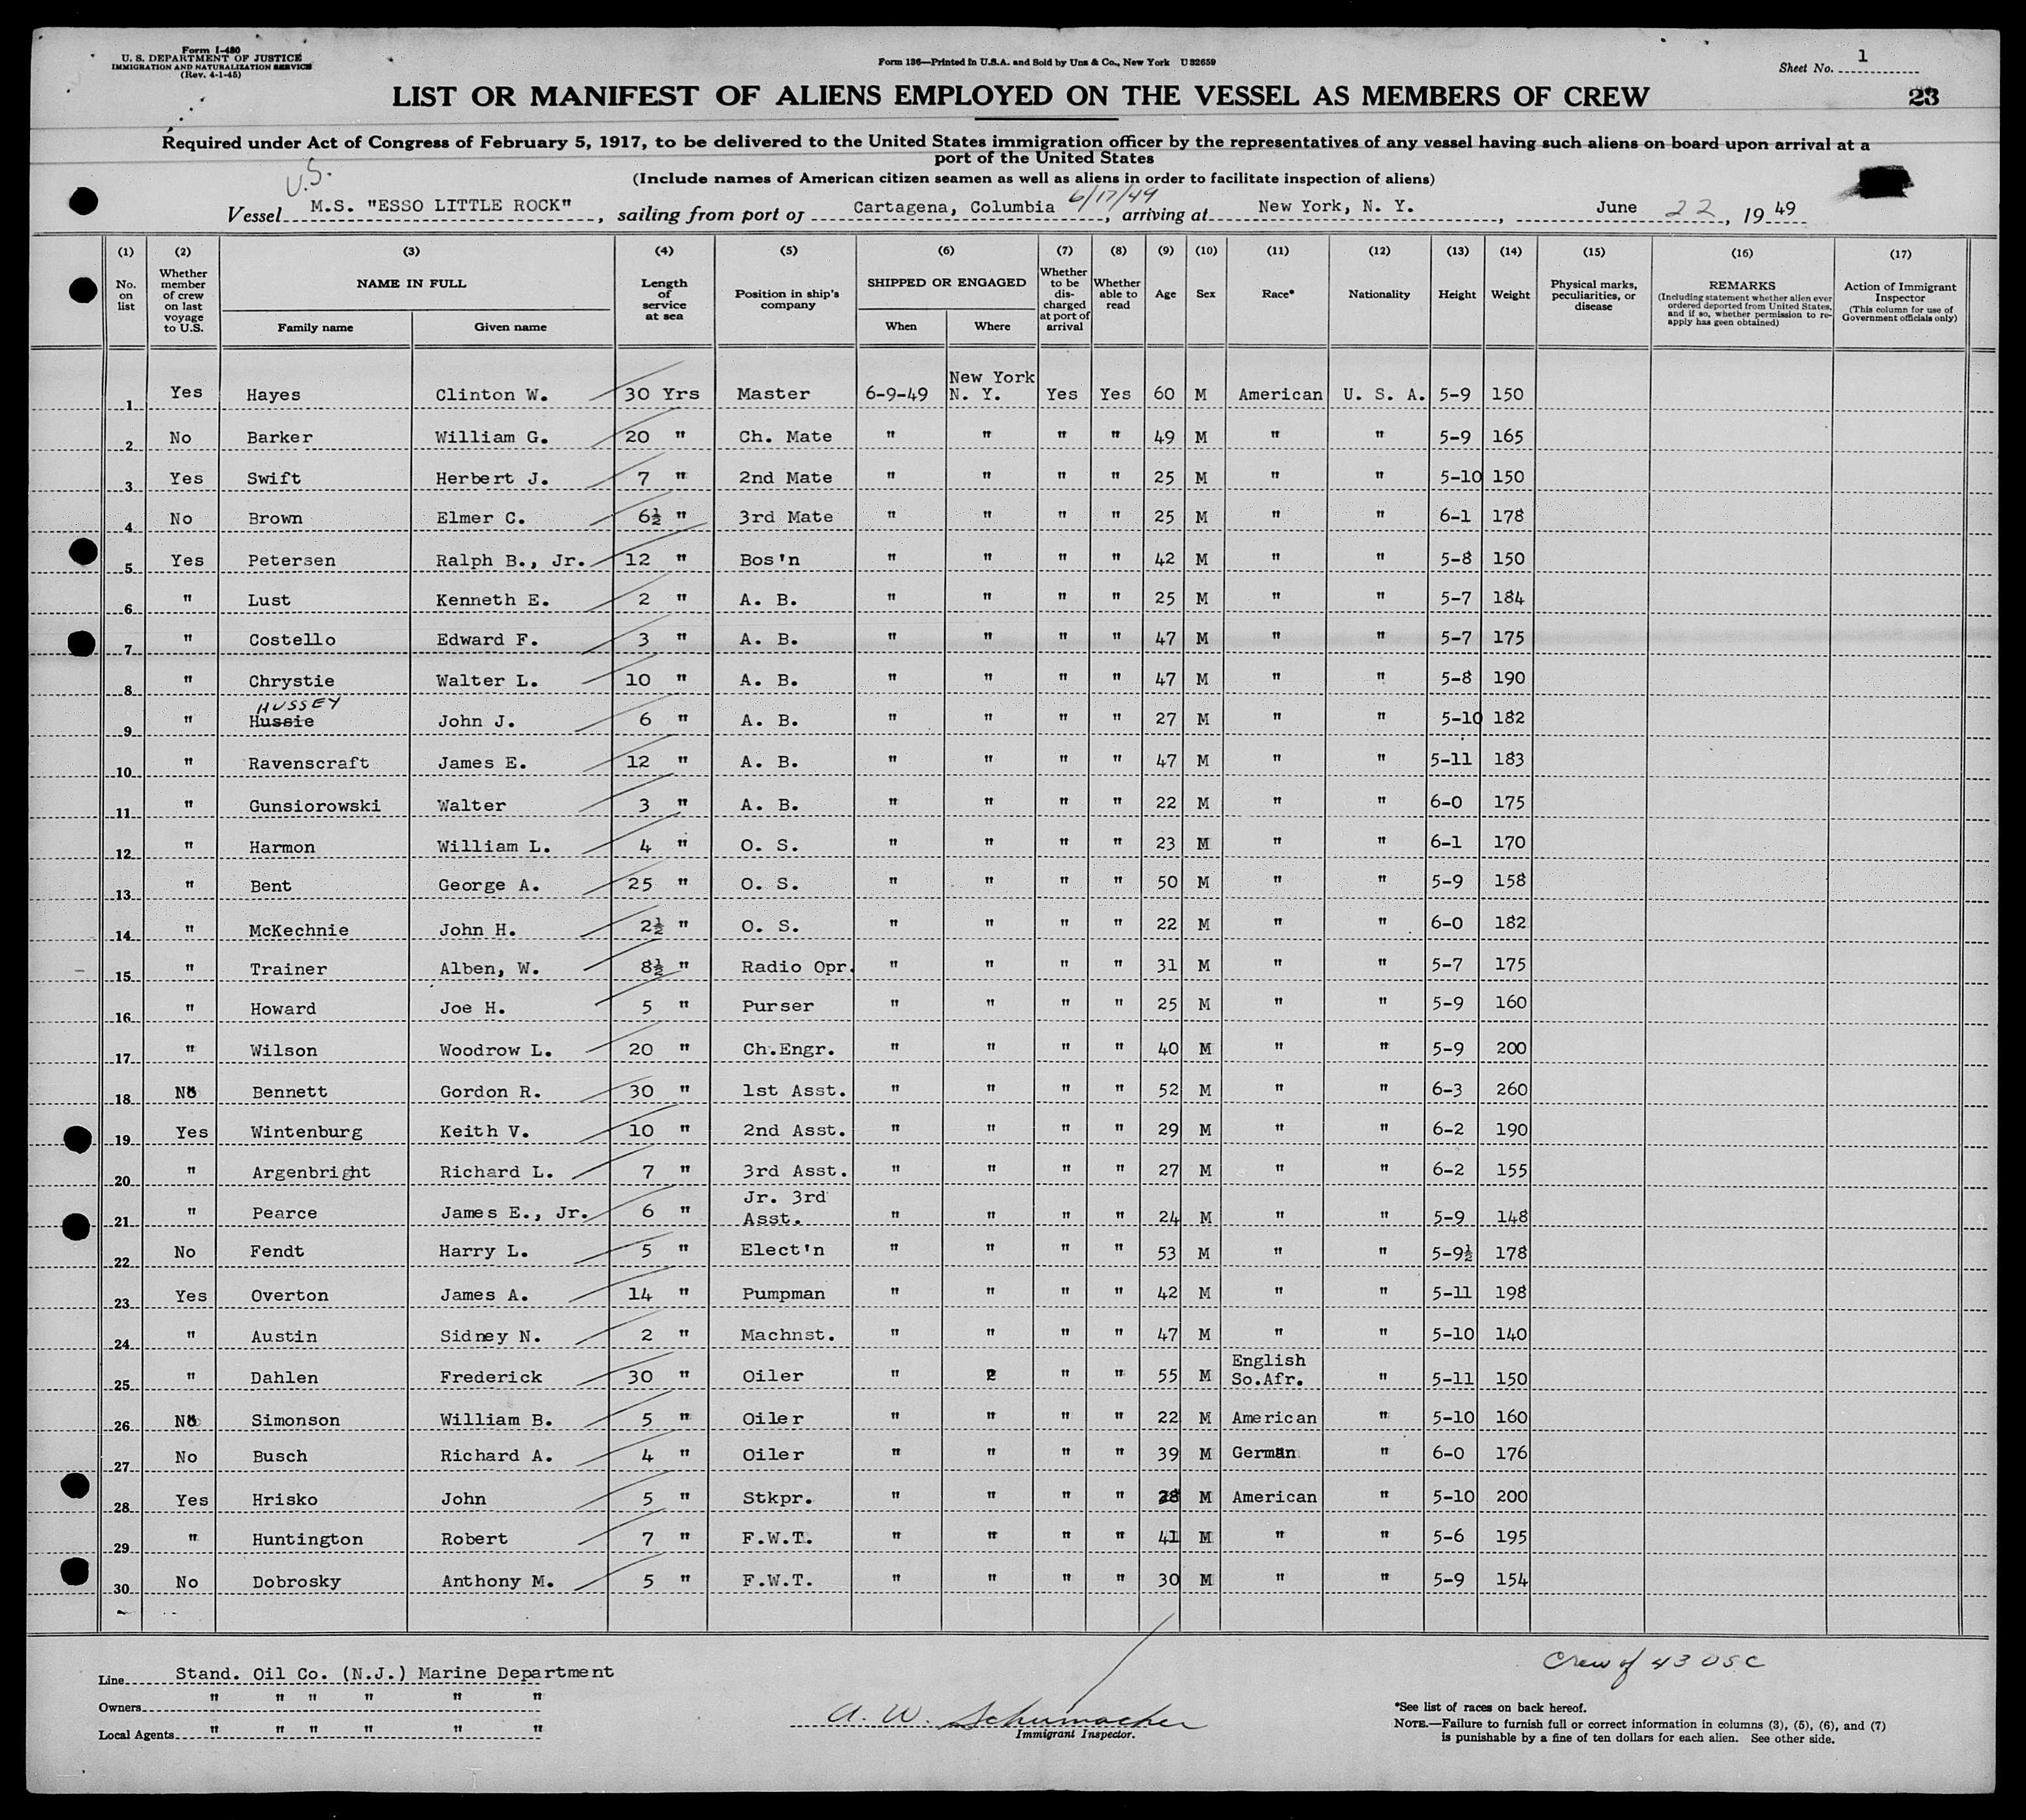 Form I-480
U. S. DEPARTMENT OF JUSTICE
IMMIGRATION AND NATURALIZATION SERVICE
(Rev. 4-1-45)
Form 136—Printed in U.S.A. and Sold by Unz & Co., New York U 32659
Sheet No. 1
LIST OR MANIFEST OF ALIENS EMPLOYED ON THE VESSEL AS MEMBERS OF CREW
23
Required under Act of Congress of February 5, 1917, to be delivered to the United States immigration officer by the representatives of any vessel having such aliens on board upon arrival at a
port of the United States
(Include names of American citizen seamen as well as aliens in order to facilitate inspection of aliens)
U.S.
6/17/49
Vessel M.S. "ESSO LITTLE ROCK", sailing from port of Cartagena, Columbia, arriving at New York, N. Y., June 22, 19 49
(1) (2) (3) (4) (5) (6) (7) (8) (9) (10) (11) (12) (13) (14) (15) (16) (17)
No. on list
Whether member of crew on last voyage to U.S.
NAME IN FULL
Family name
Given name
Length of service at sea
Position in ship's company
SHIPPED OR ENGAGED
When
Where
Whether to be dis-charged at port of arrival
Whether able to read
Age
Sex
Race*
Nationality
Height
Weight
Physical marks, peculiarities, or disease
REMARKS
(Including statement whether alien ever ordered deported from United States, and if so, whether permission to re-apply has geen obtained)
Action of Immigrant Inspector
(This column for use of Government officials only)
1 Yes Hayes Clinton W. 30 Yrs Master 6-9-49 New York N. Y. Yes Yes 60 M American U. S. A. 5-9 150
2 No Barker William G. 20 " Ch. Mate " " " " 49 M " " 5-9 165
3 Yes Swift Herbert J. 7 " 2nd Mate " " " " 25 M " " 5-10 150
4 No Brown Elmer C. 6½ " 3rd Mate " " " " 25 M " " 6-1 178
5 Yes Petersen Ralph B., Jr. 12 " Bos'n " " " " 42 M " " 5-8 150
6 " Lust Kenneth E. 2 " A. B. " " " " 25 M " " 5-7 184
7 " Costello Edward F. 3 " A. B. " " " " 47 M " " 5-7 175
8 " Chrystie Walter L. 10 " A. B. " " " " 47 M " " 5-8 190
HUSSEY
9 " Hussie John J. 6 " A. B. " " " " 27 M " " 5-10 182
10 " Ravenscraft James E. 12 " A. B. " " " " 47 M " " 5-11 183
11 " Gunsiorowski Walter 3 " A. B. " " " " 22 M " " 6-0 175
12 " Harmon William L. 4 " O. S. " " " " 23 M " " 6-1 170
13 " Bent George A. 25 " O. S. " " " " 50 M " " 5-9 158
14 " McKechnie John H. 2½ " O. S. " " " " 22 M " " 6-0 182
15 " Trainer Alben, W. 8½ " Radio Opr. " " " " 31 M " " 5-7 175
16 " Howard Joe H. 5 " Purser " " " " 25 M " " 5-9 160
17 " Wilson Woodrow L. 20 " Ch.Engr. " " " " 40 M " " 5-9 200
18 No Bennett Gordon R. 30 " 1st Asst. " " " " 52 M " " 6-3 260
19 Yes Wintenburg Keith V. 10 " 2nd Asst. " " " " 29 M " " 6-2 190
20 " Argenbright Richard L. 7 " 3rd Asst. " " " " 27 M " " 6-2 155
21 " Pearce James E., Jr. 6 " Jr. 3rd Asst. " " " " 24 M " " 5-9 148
22 No Fendt Harry L. 5 " Elect'n " " " " 53 M " " 5-9½ 178
23 Yes Overton James A. 14 " Pumpman " " " " 42 M " " 5-11 198
24 " Austin Sidney N. 2 " Machnst. " " " " 47 M " " 5-10 140
25 " Dahlen Frederick 30 " Oiler " " " " 55 M English So.Afr. " 5-11 150
26 No Simonson William B. 5 " Oiler " " " " 22 M American " 5-10 160
27 No Busch Richard A. 4 " Oiler " " " " 39 M German " 6-0 176
28 Yes Hrisko John 5 " Stkpr. " " " " M American " 5-10 200
29 " Huntington Robert 7 " F.W.T. " " " " 41 M " " 5-6 195
30 No Dobrosky Anthony M. 5 " F.W.T. " " " " 30 M " " 5-9 154
Line Stand. Oil Co. (N.J.) Marine Department
Owners " " " " " "
Local Agents " " " " " "
A. W. Schumacher
Immigrant Inspector.
Crew of 43 USC
*See list of races on back hereof.
NOTE.—Failure to furnish full or correct information in columns (3), (5), (6), and (7)
is punishable by a fine of ten dollars for each alien. See other side.